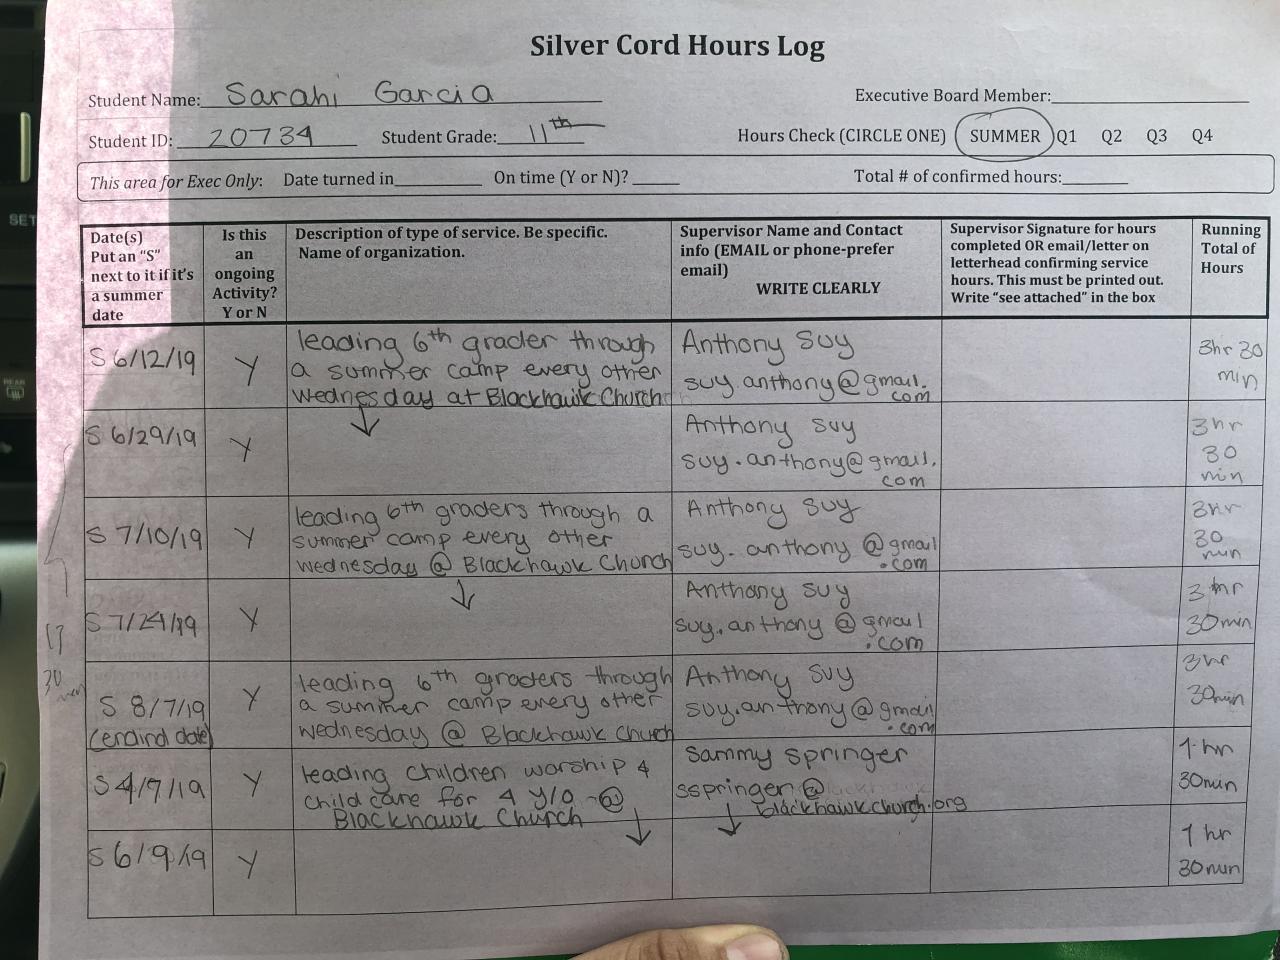 Silver Cord Hours Log
Student Name: Sarahi Garcia
Executive Board Member:
Student ID: 20734 Student Grade: 11th
Hours Check (CIRCLE ONE) SUMMER Q1 Q2 Q3 Q4
This area for Exec Only: Date turned in On time (Y or N)? Total # of confirmed hours:
Date(s)
Put an "S"
next to it if it's
a summer
date
Is this
an
ongoing
Activity?
Y or N
Description of type of service. Be specific.
Name of organization.
Supervisor Name and Contact
info (EMAIL or phone-prefer
email)
WRITE CLEARLY
Supervisor Signature for hours
completed OR email/letter on
letterhead confirming service
hours. This must be printed out.
Write "see attached" in the box
Running
Total of
Hours
S 6/12/19
Y
leading 6th grader through
a summer camp every other
Wednesday at Blackhawk Church
Anthony Suy
suy.anthony@gmail.
com
3hr 30
min
S 6/29/19
Y
Anthony Suy
suy.anthony@gmail.
com
3hr
30
min
S 7/10/19
Y
leading 6th graders through a
summer camp every other
Wednesday @ Blackhawk Church
Anthony Suy
suy.anthony@gmail
.com
3hr
30
min
S 7/24/19
Y
Anthony Suy
suy.anthony@gmail
.com
3 hr
30min
S 8/7/19
(endind date)
Y
leading 6th graders through
a summer camp every other
Wednesday @ Blackhawk Church
Anthony Suy
suy.anthony@gmail
.com
3hr
30min
S 4/7/19
Y
leading children worship &
child care for 4 y/o @
Blackhawk Church
Sammy Springer
sspringer@
blackhawkchurch.org
1 hr
30min
S 6/9/19
Y
1 hr
30min
17
30
min
SET
REAR